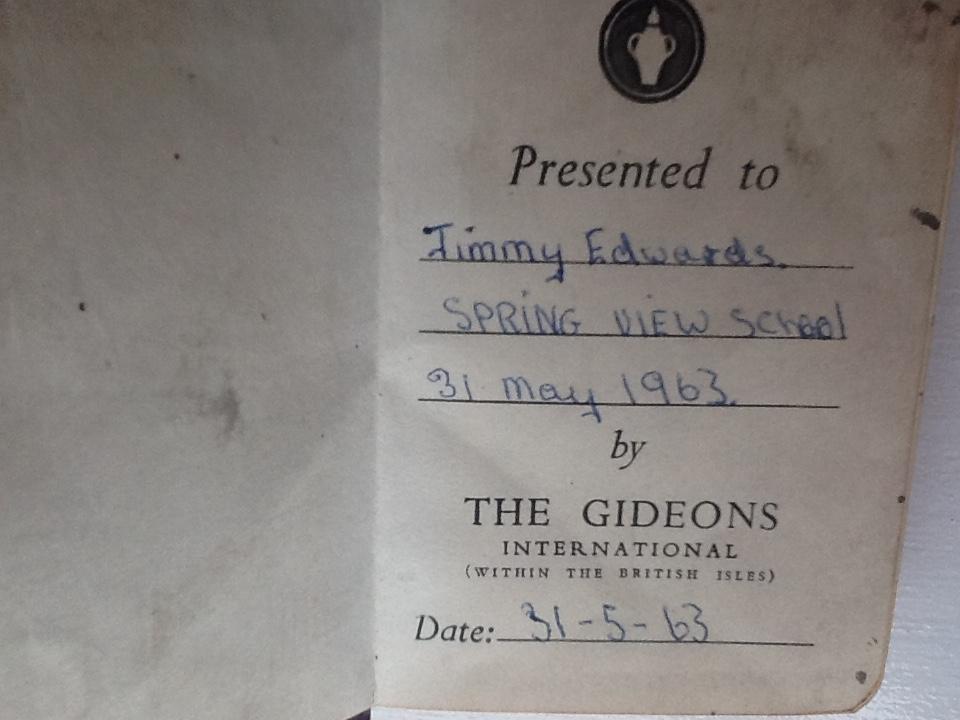 Presented to
Jimmy Edwards.
SPRING VIEW School
31 May 1963.
by
THE GIDEONS
INTERNATIONAL
(WITHIN THE BRITISH ISLES)
Date: 31-5-63